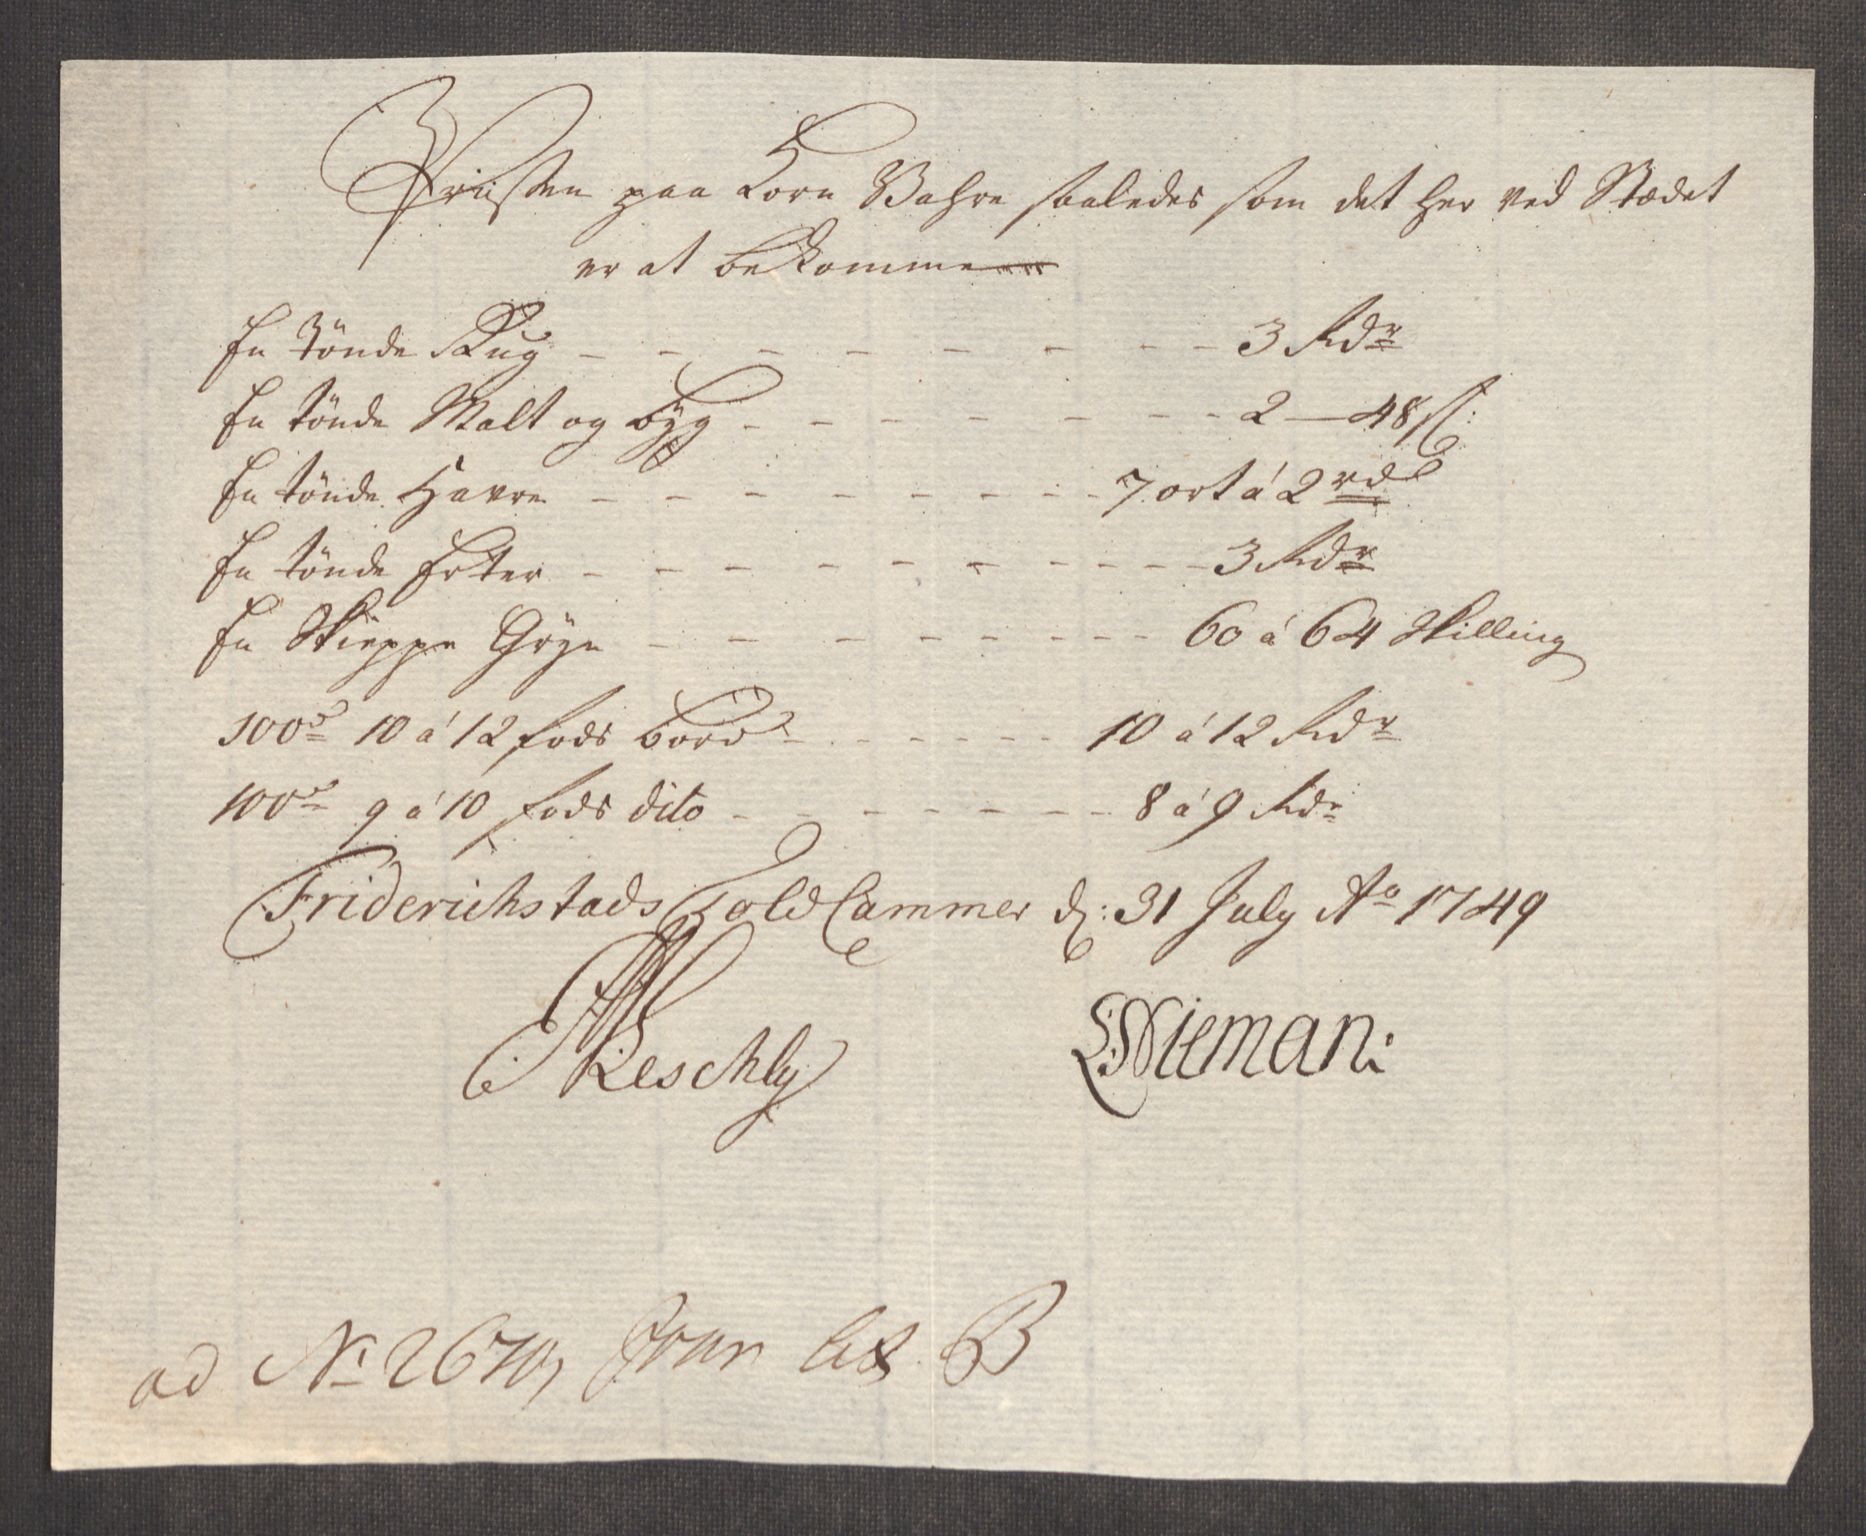 Prissen paa Korn Wahre saaledes som det her ved Stædet
er at bekomme
En Tönde Rug - - - - - - - - 3 Rdr
En tönde Malt og Byg - - - - - - - 2 — 48 s:
En tönde Havre - - - - - - - - 7 ort á 2 rdl
En tönde Erter - - - - - - - - - 3 Rdr
En Skieppe Gryn - - - - - - - - 60 á 64 Skilling
100de 10 á 12 fods Bord - - - - - 10 á 12 Rdr
100de 9 á 10 fods dito - - - - - - - 8 á 9 Rdr
Friderichstads Told Cammer d: 31 July Ao 1749
Reschly Nieman:
ad No 2670, Jour Lit B